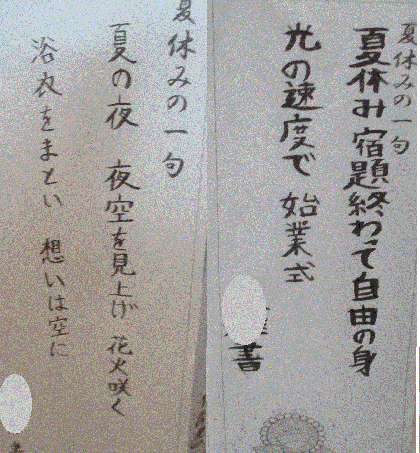 夏休みの一句
夏休み 宿題終わって 自由の身
光の速度で 始業式
書
夏休みの一句
夏の夜 夜空を見上げ 花火咲く
浴衣をまとい 想いは空に